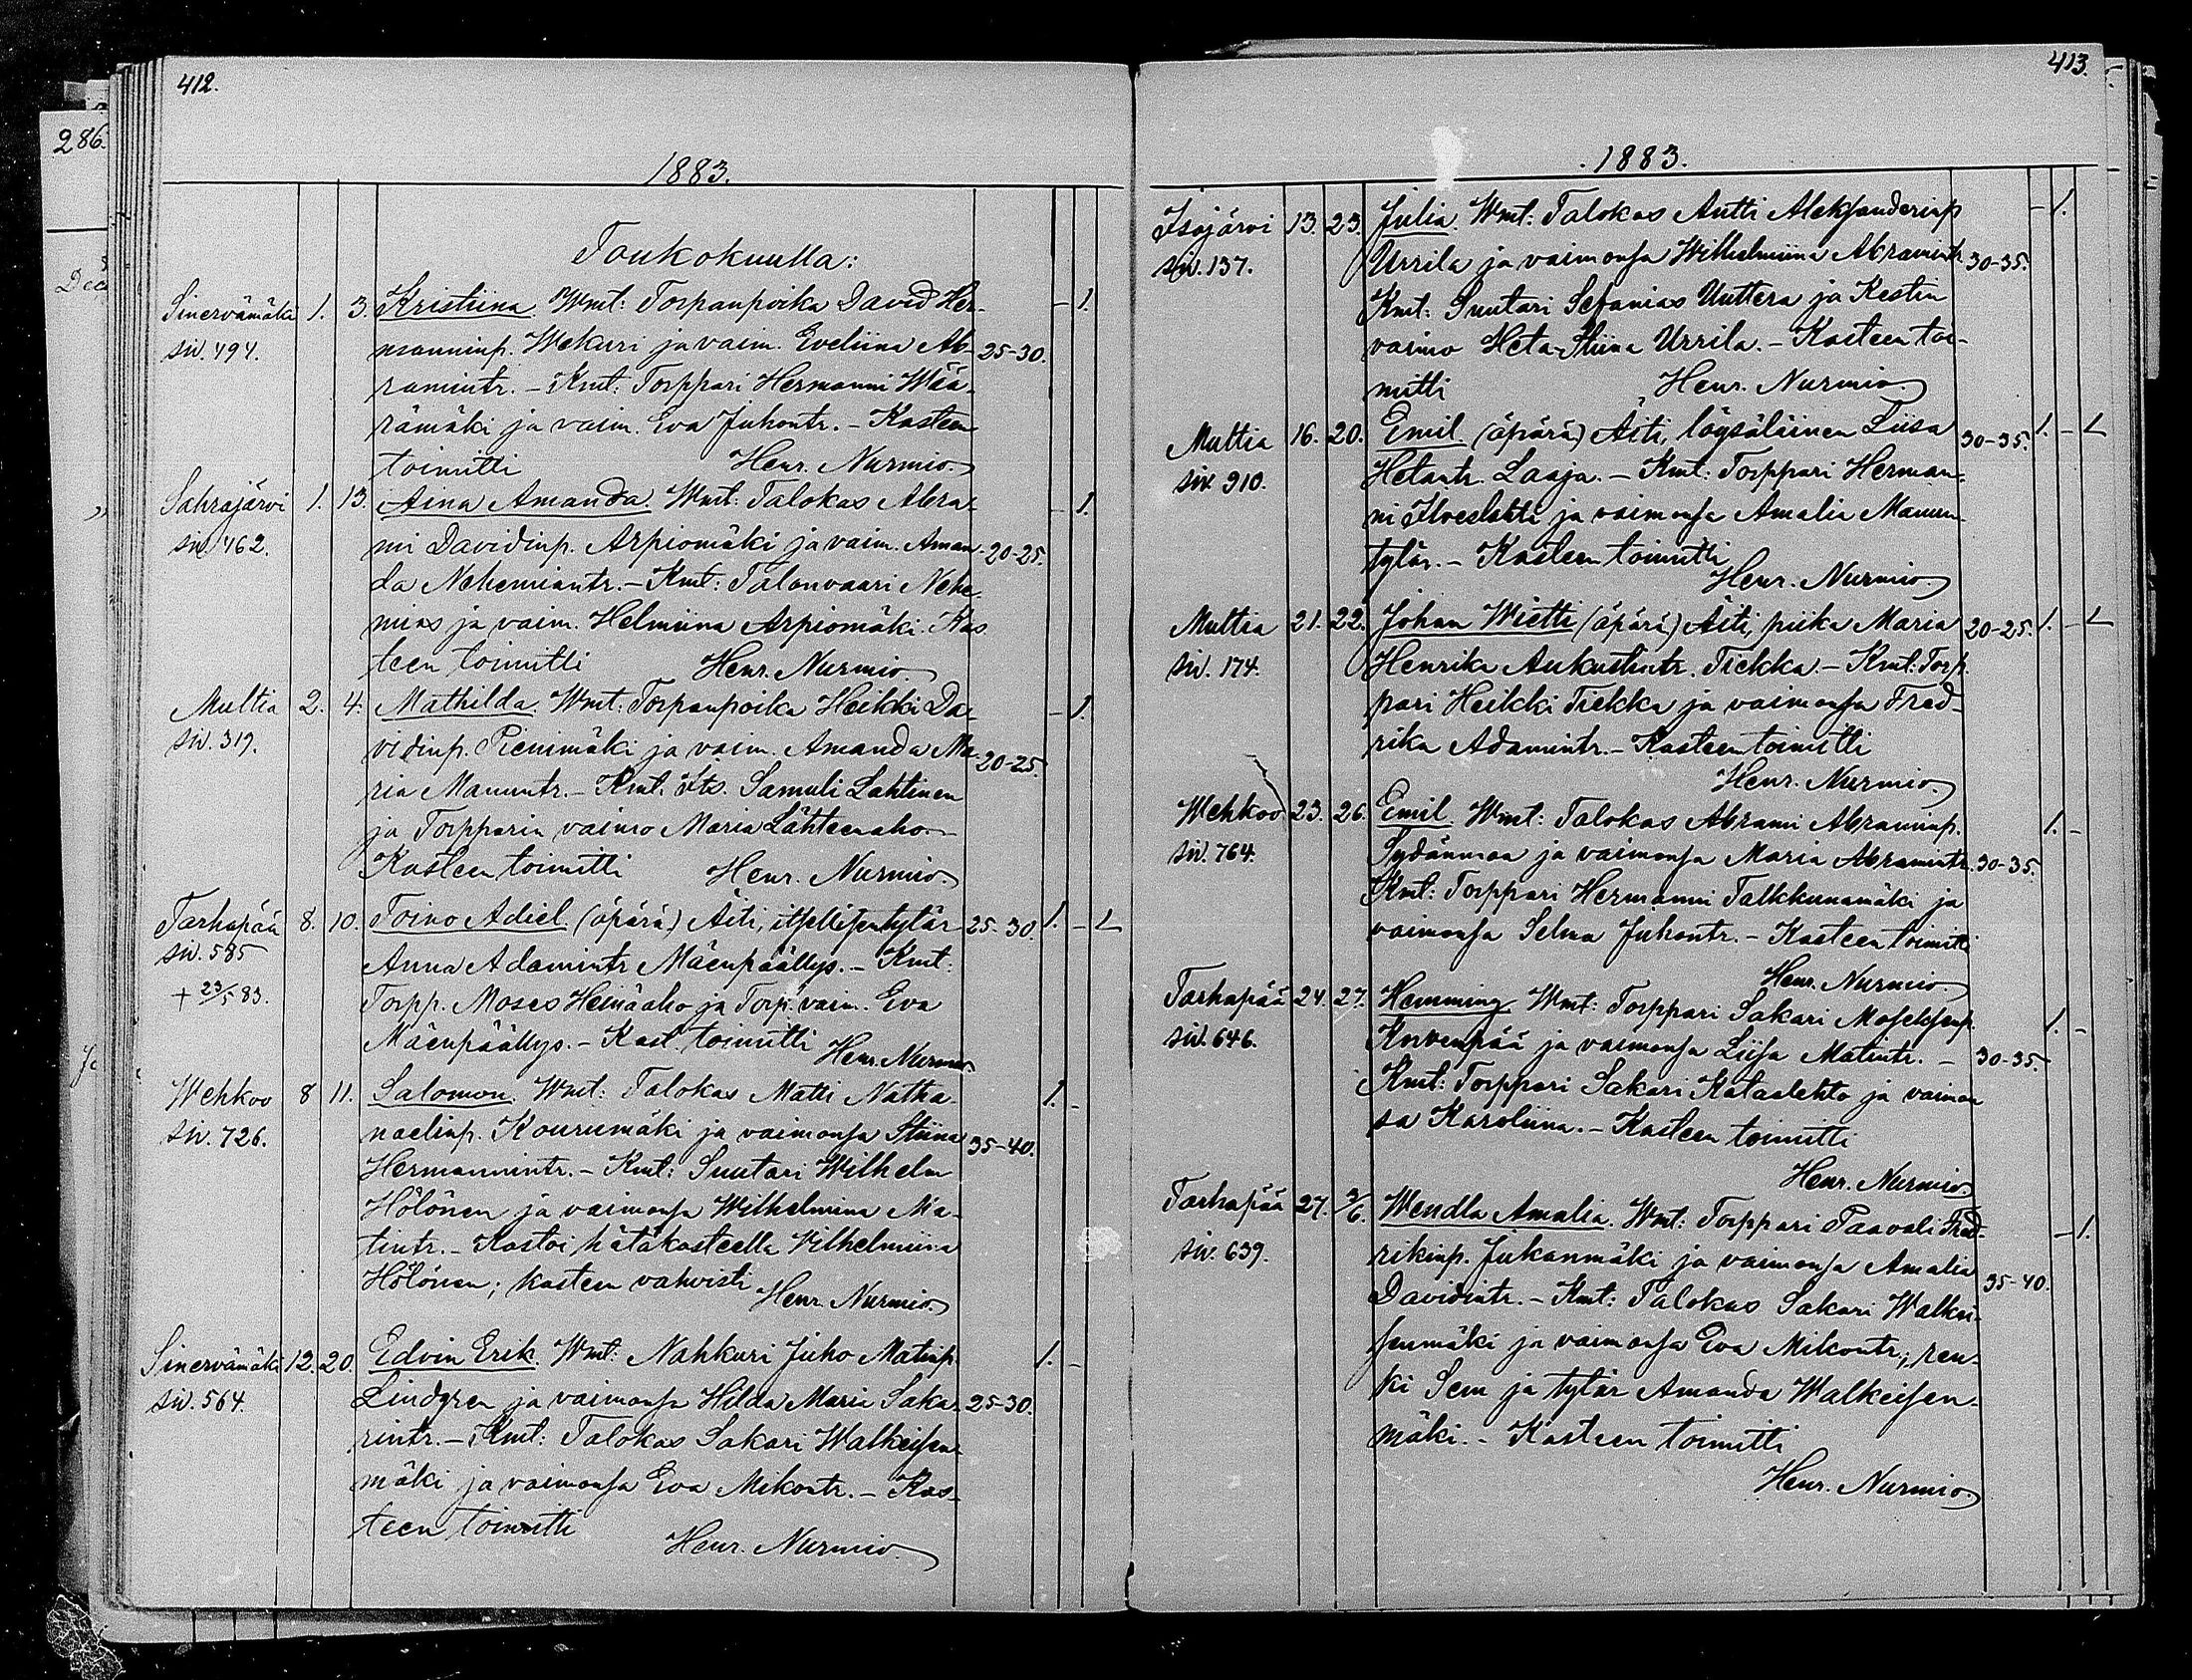 412.
286.
1883.
Toukokuulla:
Sinervämäki 1. 3. Kristiina. Wmt: Torpanpoika David Her-
siv. 494. manninp. Wekuri ja vaim. Eveliina Ab- 25-30. - 1.
ramintr. - Kmt: Torppari Hermanni Wää-
rämäki ja vaim. Eva Juhontr. - Kasteen
toimitti Henr. Nurmio.
Sahrajärvi 1. 13. Aina Amanda. Wmt: Talokas Abra- - 1.
siv. 462. mi Davidinp. Arpiomäki ja vaim. Aman- 20-25.
da Nehemiantr. - Kmt: Talonvaari Nehe-
mias ja vaim. Helmiina Arpiomäki. Kas
teen toimitti Henr. Nurmio.
Multia 2. 4. Mathilda. Wmt. Torpanpoika Heikki Da- - 1.
siv. 319. vidinp. Pienimäki ja vaim. Amanda Ma- 20-25.
ria Manuntr. - Kmt. Its. Samuli Lahtinen
ja Torpparin vaimo Maria Lähteenaho. -
Kasteen toimitti Henr. Nurmio.
Tarhapää 8. 10. Toino Adiel (äpärä) Äiti, itsellisentytär 25-30. 1. - L
siv. 585 Anna Adamintr Mäenpäällys. - Kmt:
+ 23/5 83. Torpp. Moses Heinäaho ja Torp. vaim. Eva
Mäenpäällys. - Kast. toimitti Henr. Nurmio.
Wehkoo 8 11. Salomon. Wmt: Talokas Matti Natha- 1. -
siv. 726. naelinp. Kourumäki ja vaimonsa Stiina 35-40.
Hermannintr. - Kmt: Suutari Wilhelm
Hölönen ja vaimonsa Wilhelmina Ma-
tintr. - Kastoi hätäkasteella Vilhelmiina
Hölönen; kasteen vahvisti Henr. Nurmio.
Sinervämäki 12. 20. Edvin Erik. Wmt: Nahkuri Juho Matinp. 1. -
siv. 564. Lindgren ja vaimonsa Hilda Maria Saka- 25-30.
rintr. - Kmt: Talokas Sakari Walkeisen-
mäki ja vaimonsa Eva Mikontr. - Kas-
teen toimitti
Henr. Nurmio.
413.
1883.
Isojärvi 13. 23. Julia. Wmt: Talokas Antti Aleksanderinp - 1.
siv. 137. Urrila ja vaimonsa Wilhelmiina Abramintr. 30-35.
Kmt: Suutari Sefanias Uuttera ja Kestin
vaimo Heta-Stiina Urrila. - Kasteen toi-
mitti Henr. Nurmio.
Multia 16. 20. Emil. (äpärä) Äiti, löysäläinen Liisa 30-35. 1. - L
siv. 910. Hetantr. Laaja. - Kmt: Torppari Herman-
ni Ilveslahti ja vaimonsa Amalia Manun-
tytär. - Kasteen toimitti
Henr. Nurmio.
Multia 21. 22. Johan Wietti (äpärä) Äiti, piika Maria 20-25. 1. - L
siv. 174. Henrika Aukustintr. Tiekka. - Kmt: Torp-
pari Heikki Tiekka ja vaimonsa Fred-
rika Adamintr. - Kasteen toimitti
Henr. Nurmio.
Wehkoo 23. 26. Emil. Wmt: Talokas Abrami Abraminp. 1. -
siv. 764. Sydänmaa ja vaimonsa Maria Abramintr. 30-35.
Kmt: Torppari Hermanni Talkkunamäki ja
vaimonsa Selma Juhontr. - Kasteen toimitti
Henr. Nurmio.
Tarhapää 24. 27. Hemming. Wmt: Torppari Sakari Moseksenp. 1. -
siv. 646. Korvenpää ja vaimonsa Liisa Matintr. - 30-35.
Kmt: Torppari Sakari Kataalehto ja vaimon
sa Karoliina. - Kasteen toimitti
Henr. Nurmio.
Tarhapää 27. 3/6. Wendla Amalia. Wmt: Torppari Paavali Fred- - 1.
siv. 639. rikinp. Jukanmäki ja vaimonsa Amalia 35-40.
Davidintr. - Kmt: Talokas Sakari Walkei-
senmäki ja vaimonsa Eva Mikontr.; ren-
ki Sem ja tytär Amanda Walkeisen-
mäki. - Kasteen toimitti
Henr. Nurmio.